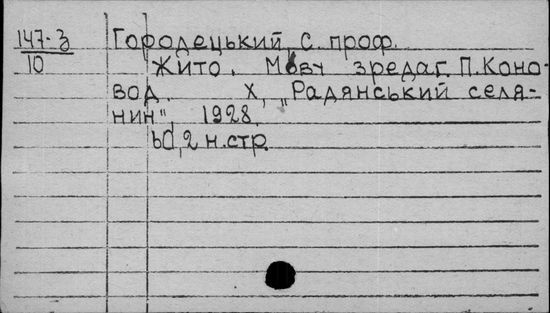 147-з
10
Городецький, С. проф.
Жито. Мову зредаг. П. Коно-
вод. Х, „Радянський селя-
нин", 1928.
60, 2 н.стр.